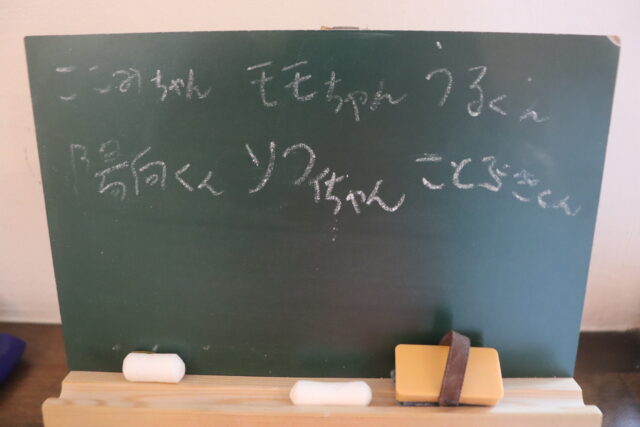 ここみちゃん モモちゃん うるくん
陽向くん ソフィちゃん ことぶきくん